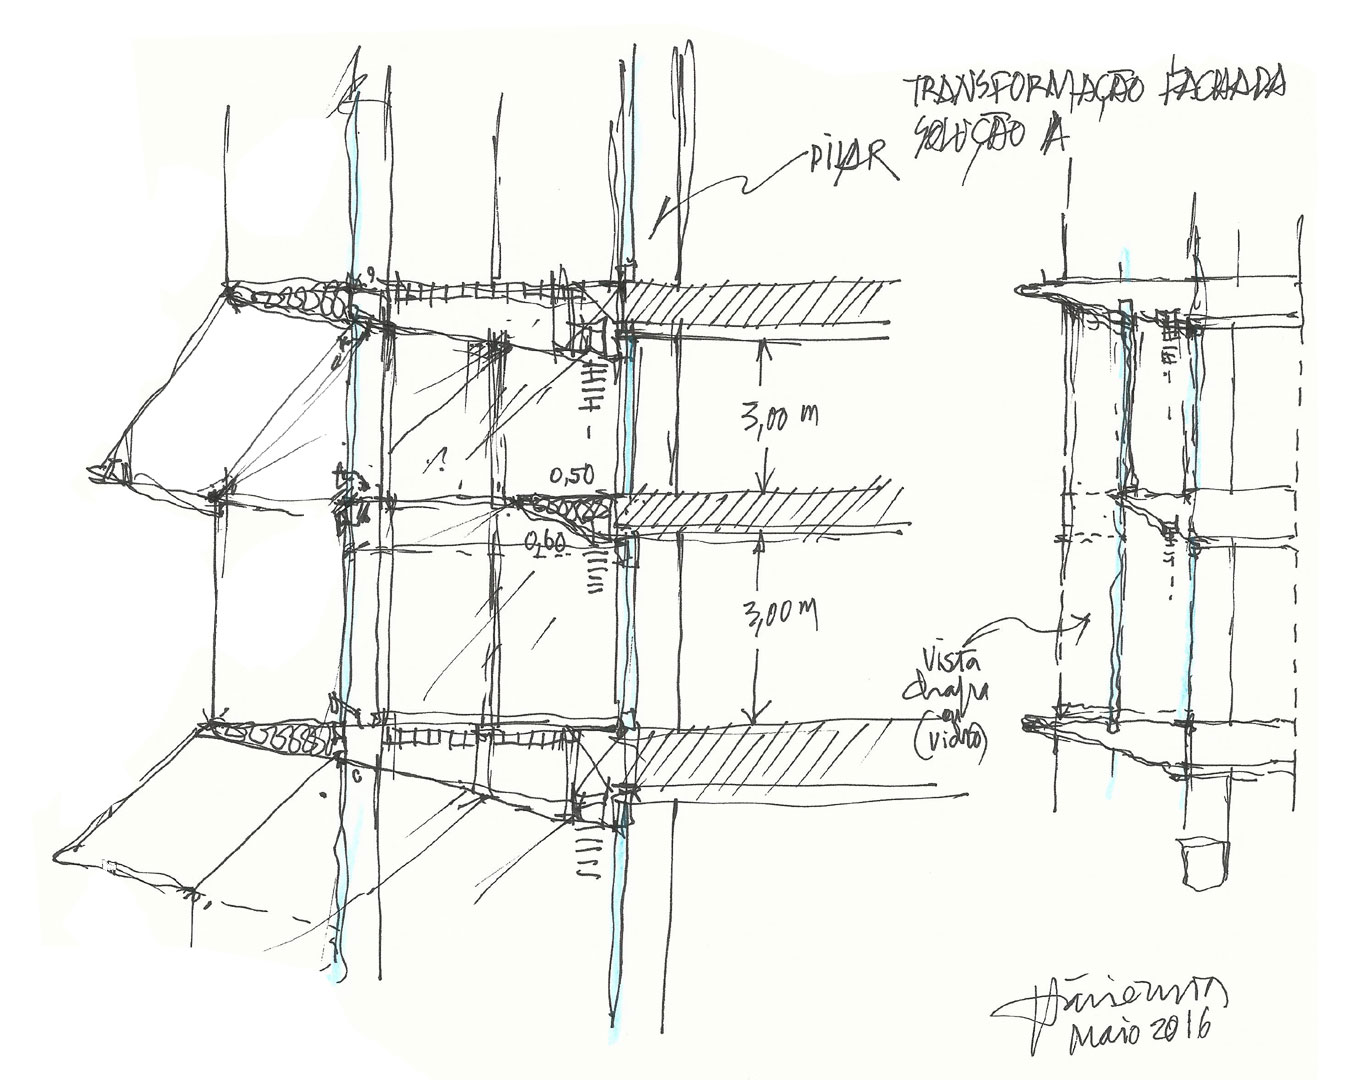 TRANSFORMAÇÃO FACHADA
SOLUÇÃO A
PILAR
3,00 m
0,50
0,60
3,00 m
VISTA
CHAPA
OU
(VIDRO)
MAIO 2016